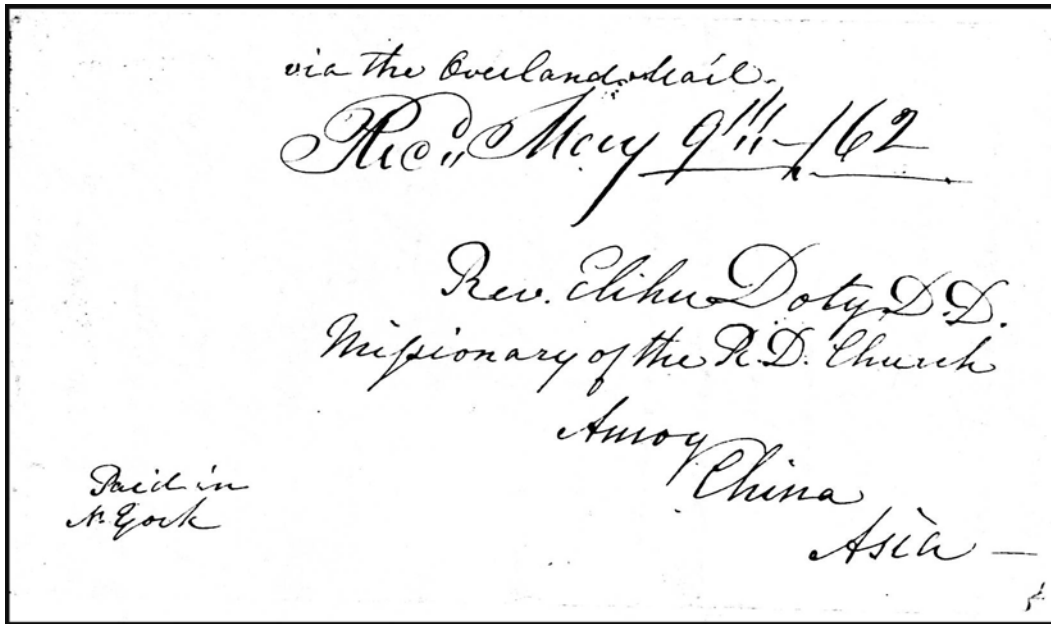 via the Overland Mail.
Recd,, May 9'''-/62
Rev. Elihu Doty D.D.
Missionary of the R.D. Church
Amoy
China
Asia —
Paid in
N. York